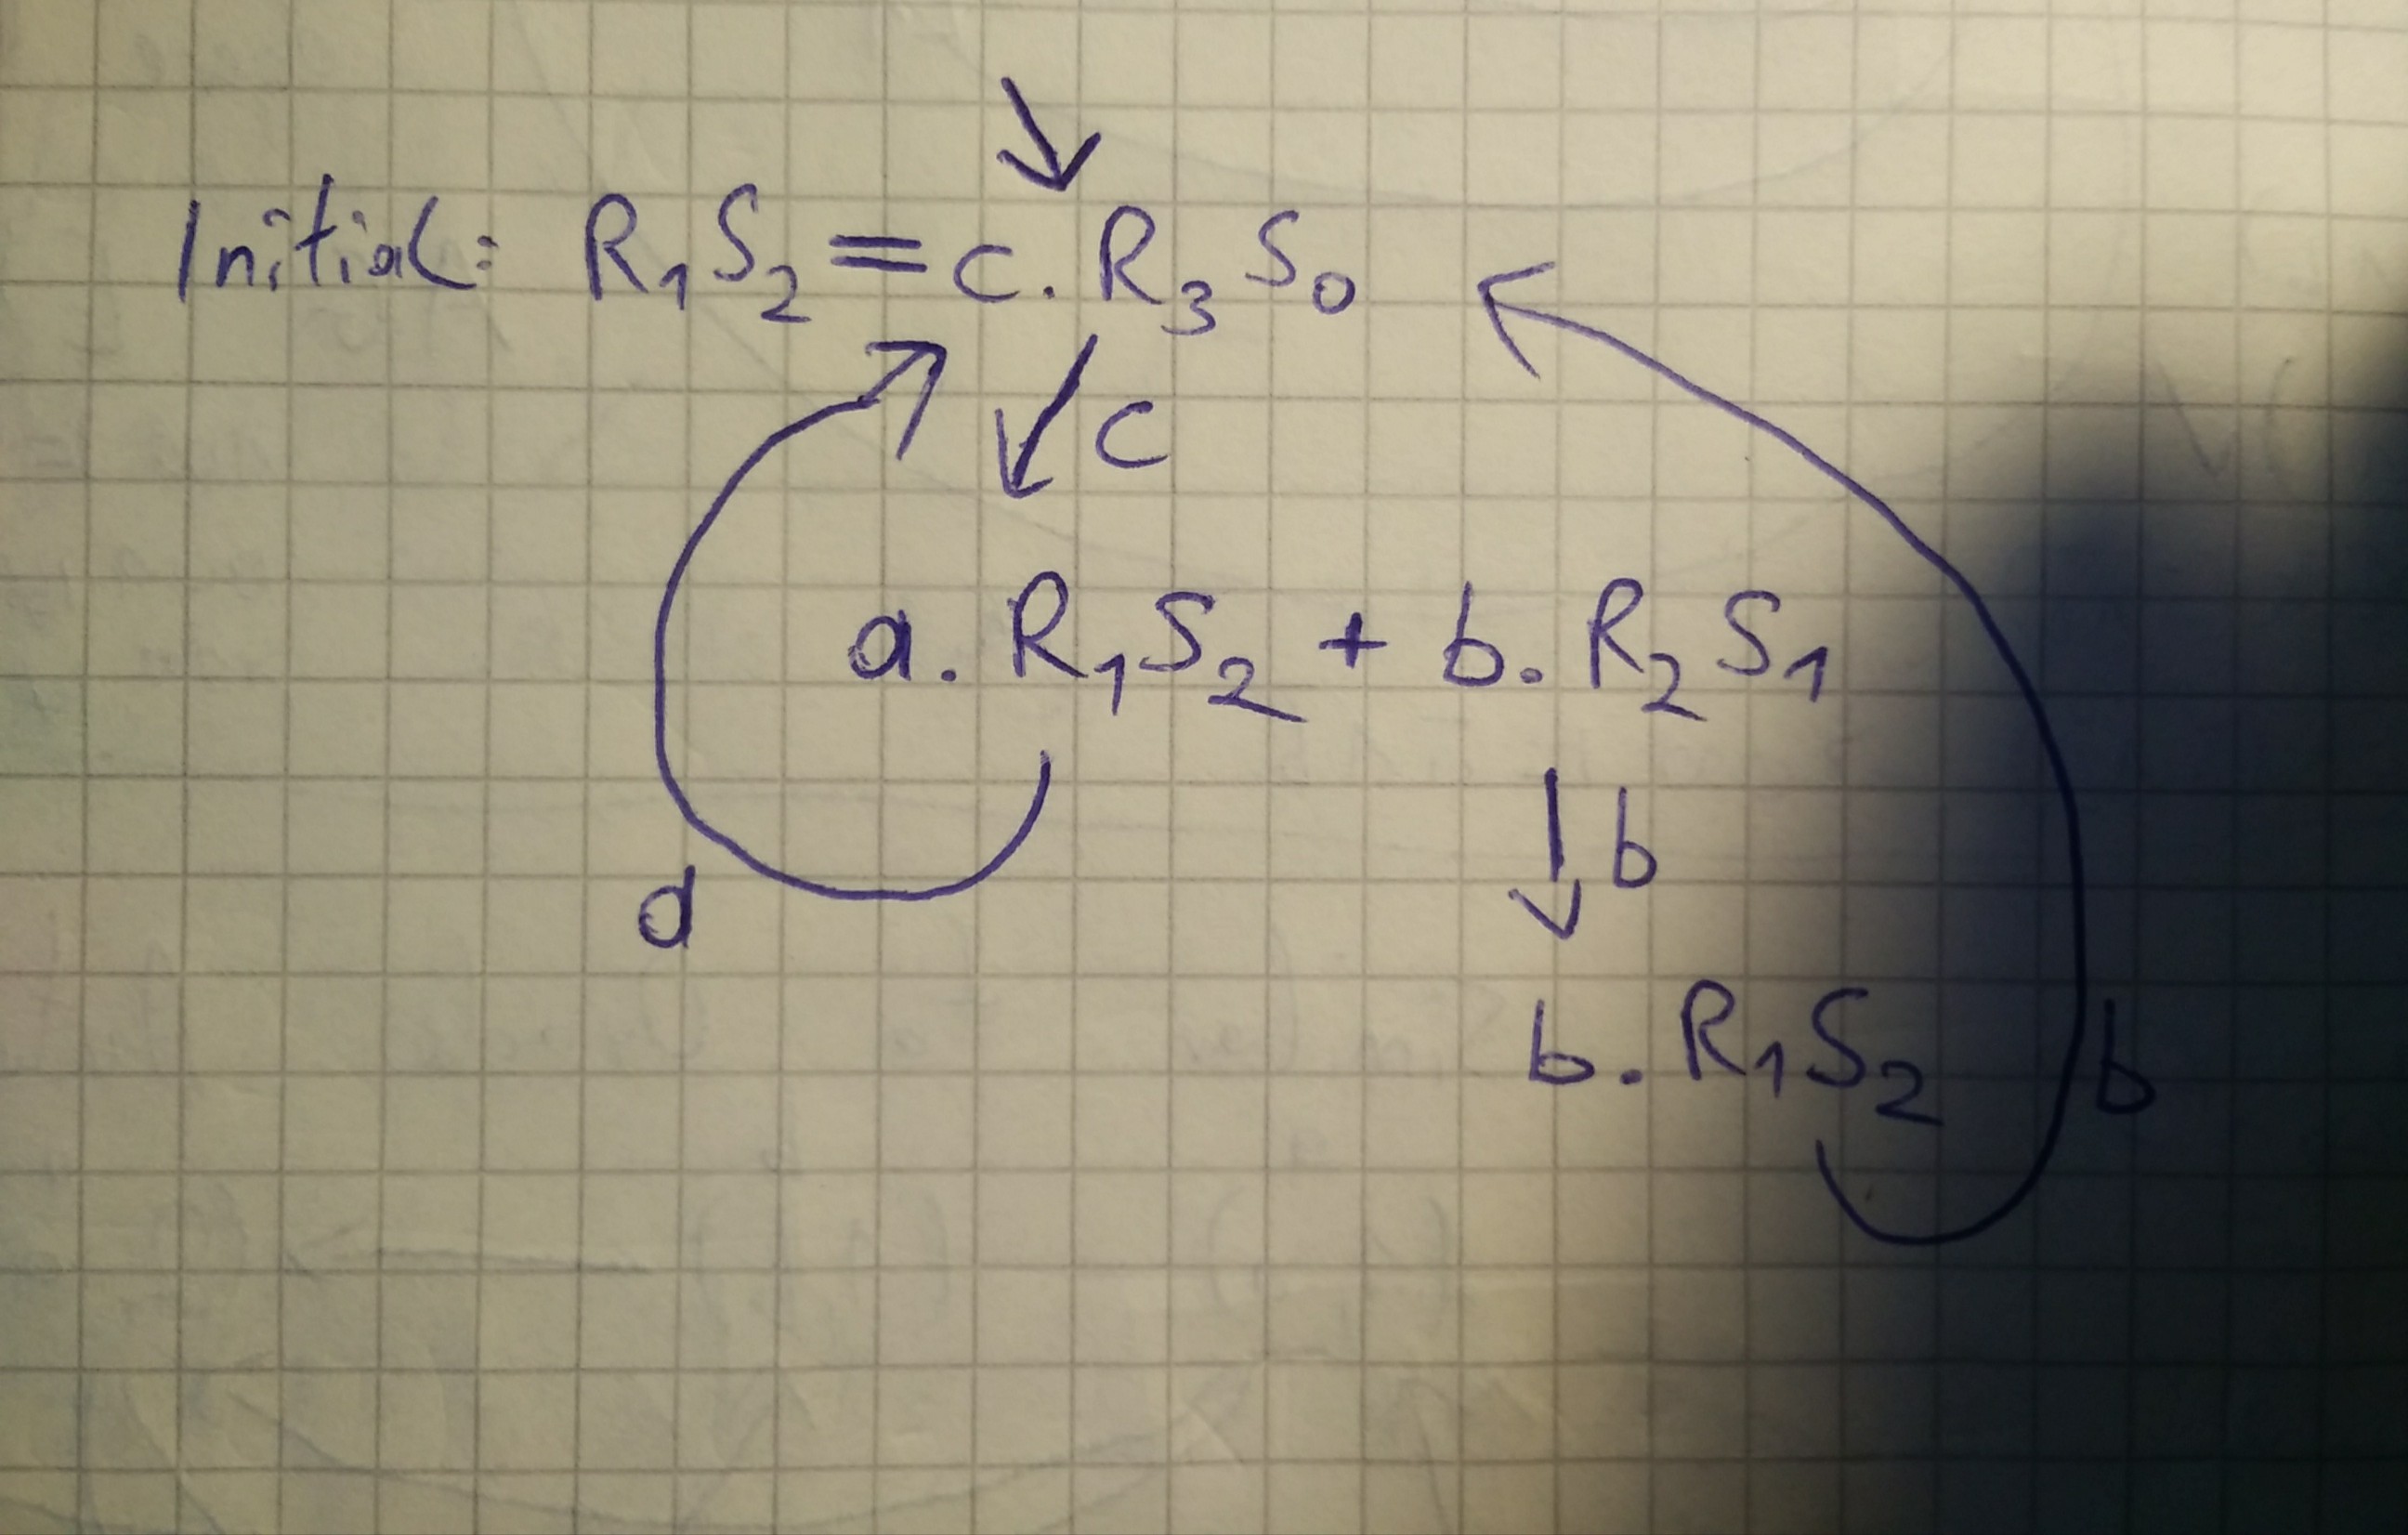 Initial: R₁S₂ = c. R₃S₀
c
a. R₁S₂ + b. R₂S₁
d b
b. R₁S₂ b